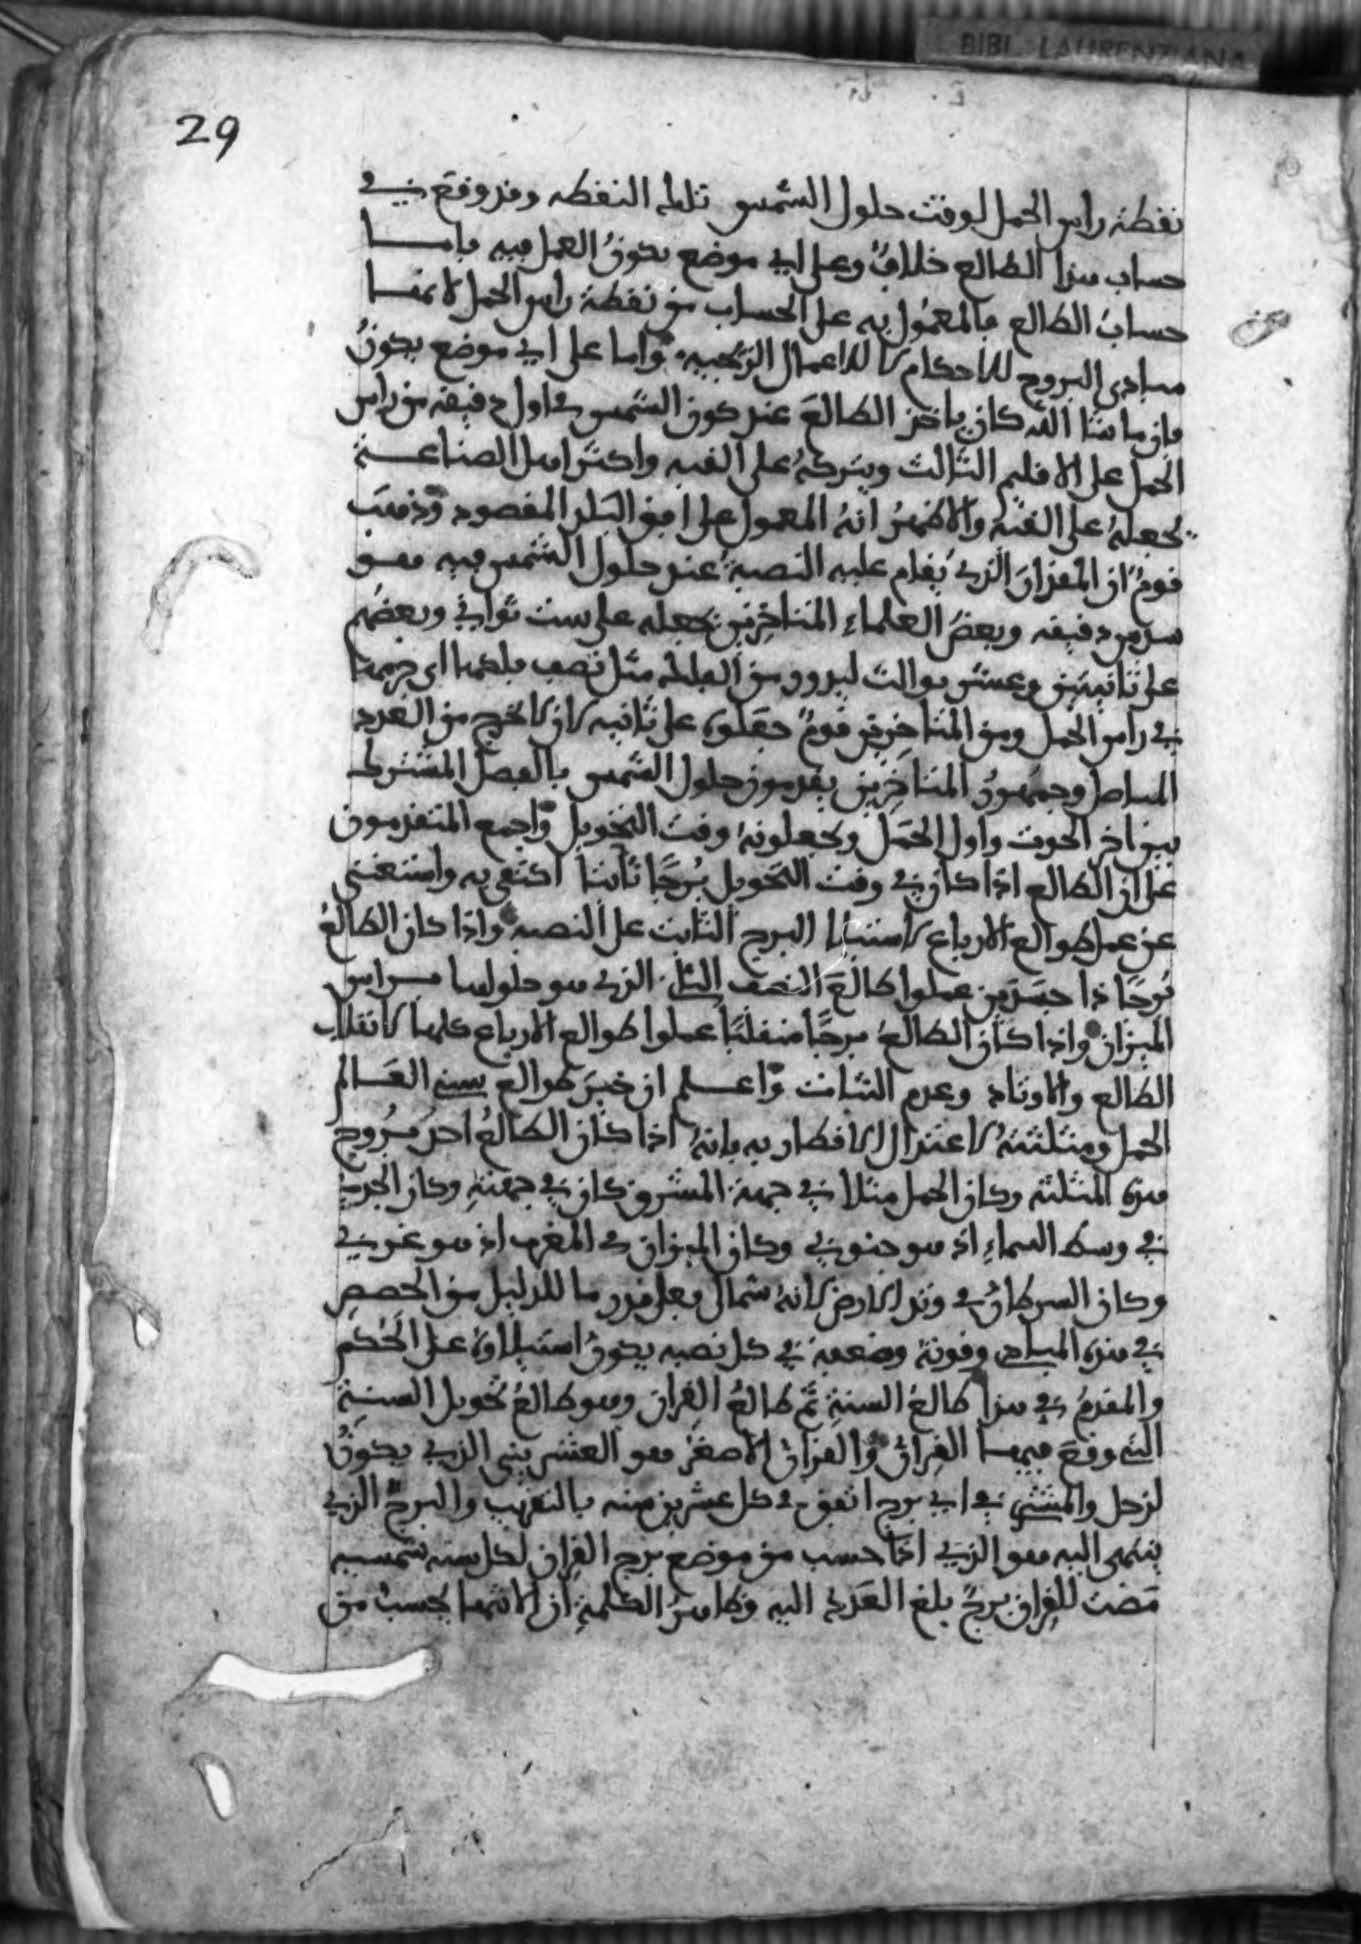 BIBL. LAURENZIANA
29
نقطة راس الحمل لوقت حلول الشمس تلك النقطه وقد وقع في
حساب هذا الطالع خلافٌ وعلى اي موضع يكونُ العمل فيه فاما
حسابُ الطالع فالمعمُول به على الحساب من نقطة راس الحمل لانها
مبادى البروج للاحكام لا للاعمال الرصديه واما على اي موضع يكونُ
فان ما شا الله كان ياخذ الطالعَ عند كون الشمس في اول دقيقه من راس
الحمل على الاقليم الثالث ويتركهُ على القبه واكثر اهل الصناعة
يجعلهُ على القبّه والاظهرُ انهُ المعمول على افق البلد المقصود وذهب
قومٌ ان المقدارَ الذي يُقام عليه النصبة عند حلول الشمس فيه هو
سدس دقيقه وبعضُ العلماءِ المتاخرين يجعله على ست ثواني وبعضهم
على ثانيتين وعشر ثوالث ليروو من الفلك مثل نصف فلكها اى جرمها
في راس الحمل ومن المتاخرين قومٌ جعلوه على ثانيه لان لا يخرج من العدد
الفاصل وجمهورُ المتاخرين يقدمون حلول الشمس بالفصل المشترك
بين اخر الحوت واول الحمل ويجعلونهُ وقت التحويل واجمع المتقدمون
على ان الطالع اذا كان في وقت التحويل بُرجًا ثابتا اكتفى به واستغنى
عن عمل طوالع الارباع لاستيلا البرج الثابت على النصبه واذا كان الطالعُ
بُرجًا ذا جسَدَين عملوا طالعَ النصف الثاني الذي هو حلولها براس
الميزان واذا كان الطالعُ برجًا منقلبًا عملوا طوالع الارباع كلها لانقلاب
الطالع والاوتاد وعدم الثبات واعلم ان خيرَ طوالع سني العالم
الحمل ومثلثتهُ لاعتدال الاقطار به فانهُ اذا كان الطالعُ احدَ بُروج
هذه المثلثه وكان الحمل مثلا في جهة المشرق كان في جهته وكان الجدي
في وسط السماءِ اذ هو جنوبي وكان الميزان في المغرب اذ هو غربي
وكان السرطانُ في وتد الارض لانهُ شمالى فعلى قدر ما للدليل من الحصصِ
في هذه المبادى وقوتهُ وضعفه في كل نصبه يكونُ استيلاوهُ على الحكم
والمقدمُ في هذا طالعُ السنة ثم طالعُ القِران وهو طالعُ تحويل السنةِ
التى وقعَ فيها القِرانُ والقرانُ الاصغرُ هو العشريني الذي يكونُ
لزحل والمشتري في اي برج اتفق في كل عشرين سنه بالتقريب والبرجُ الذي
ينتهى اليه هو الذي اذا حسب من موضع برج القِران لكل سنه شمسيه
مَضت للقِران برجٌ بلغ العَددُ اليه وظاهرُ الكلمةِ ان الانتها يحسبُ من